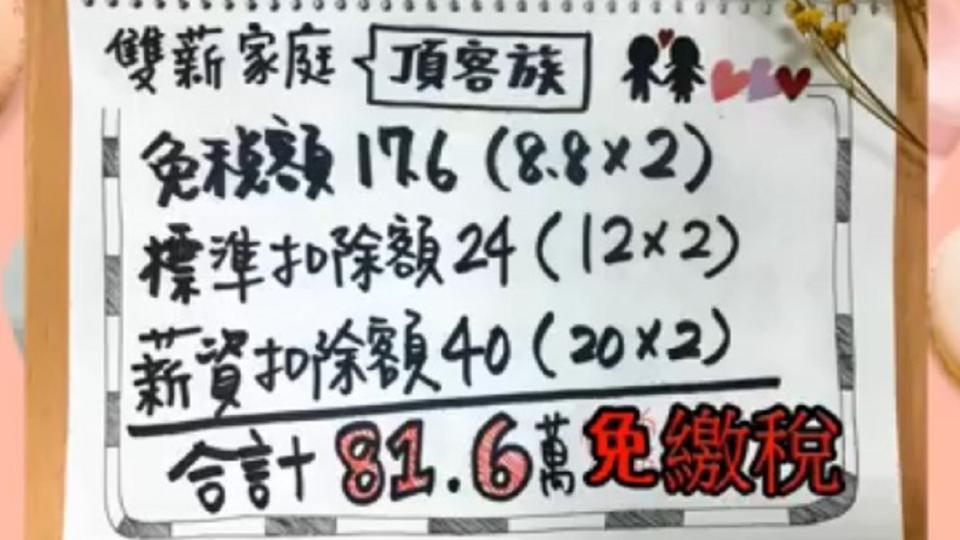 雙薪家庭 頂客族
免稅額 17.6 (8.8×2)
標準扣除額 24 (12×2)
薪資扣除額 40 (20×2)
合計 81.6萬 免繳稅